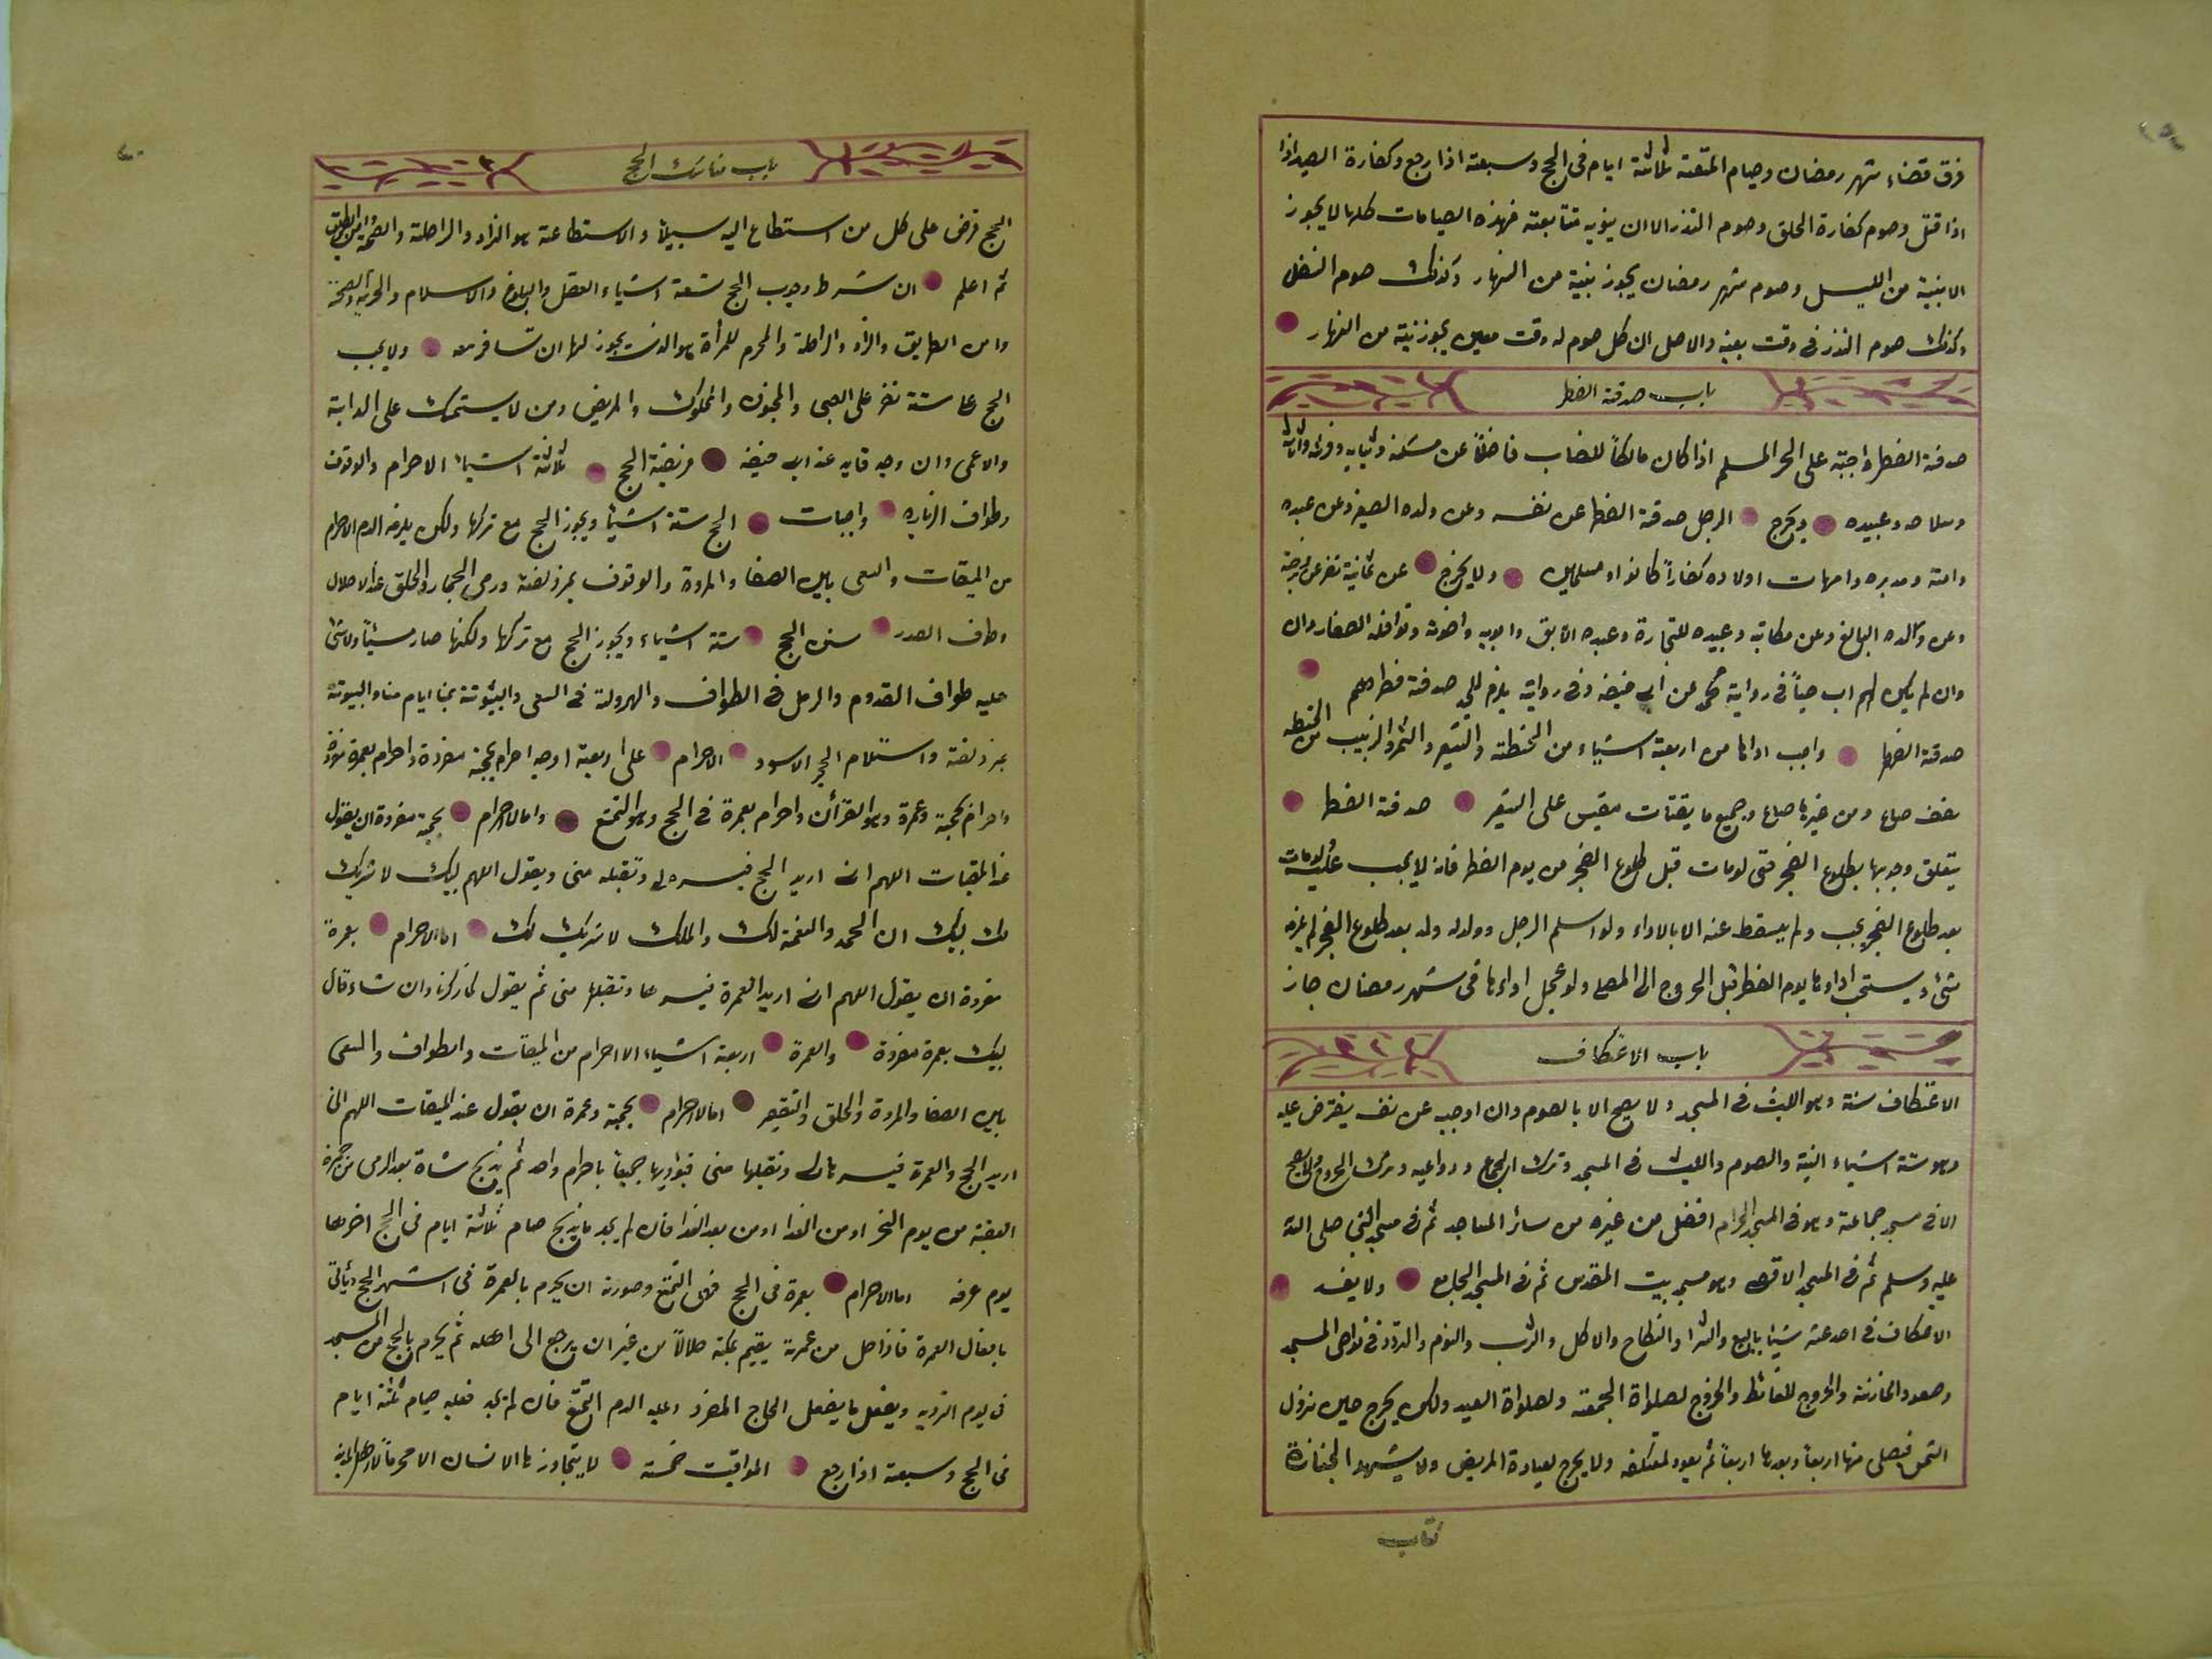 فرق قضاء شهر رمضان وصيام المتعة ثلاثة ايام فى الحج وسبعة اذا رجع وكفارة الصيد اذا
اذا قتل وصوم كفارة الحلق وصوم النذر الا ان ينويه متتابعته فهذه الصيامات كلها لا يجوز
الا بنية من الليل وصوم شهر رمضان يجوز بنية من النهار وكذلك صوم النفل
وكذلك صوم النذر فى وقت بعينه والاصل ان كل صوم له وقت معين يجوز بنية من النهار
باب صدقة الفطر
صدقة الفطر واجبة على الحر المسلم اذا كان مالكاً للنصاب فاضلاً عن مسكنه وثيابه وفرسه واثاثه
وسلاحه وعبيده ويخرج الرجل صدقة الفطر عن نفسه وعن ولده الصغير وعن عبده
وامته ومدبره وامهات اولاده كفاراً كانوا او مسلمين ولا يخرج عن ثمانية نفر عن زوجته
وعن والده البالغ وعن مكاتبه وعبيده للتجارة وعبده الآبق وابويه واخوته ونوافله الصغار وان
وان لم يكن لهم اب حياً فى رواية محمد عن ابى حنيفه وفى رواية يلزم للجد صدقة فطرهم
صدقة الفطر واجب اداها من اربعة اشياء من الحنطة والشعير والتمر والزبيب من الحنطه
نصف صاع ومن غيرها صاع وجميع ما يقتات مقيس على الشعير صدقة الفطر
يتعلق وجوبها بطلوع الفجر حتى لو مات قبل طلوع الفجر من يوم الفطر فانه لا يجب عليه لو مات
بعد طلوع الفجر يجب ولم يسقط عنه الا بالاداء ولو اسلم الرجل وولد له ولد بعد طلوع الفجر لم يلزمه
شئ ويستحب اداوها يوم الفطر قبل الخروج الى المصلى ولو عجل اداءها فى شهر رمضان جاز
باب الاعتكاف
الاعتكاف سنة وهو اللبث فى المسجد ولا يصح الا بالصوم وان اوجبه عن نفسه يفترض عليه
وهو ستة اشياء النية والصوم واللبث فى المسجد وترك الجماع ودواعيه وترك الخروج ولا يصح
الا فى مسجد جماعة وهو فى المسجد الحرام افضل من غيره من سائر المساجد ثم فى مسجد النبى صلى الله
عليه وسلم ثم فى المسجد الاقصى وهو مسجد بيت المقدس ثم فى المسجد الجامع ولا يفسد
الاعتكاف فى احد عشر شيئا بالبيع والشرا والنكاح والاكل والشرب والنوم والتردد فى نواحى المسجد
وصعود المأذنة والخروج للغائط والخروج لصلواة الجمعة ولصلواة العيد ولكن يخرج حين نزول
الشمس فيصلى منها اربعاً وبعدها اربعاً ثم يعود لمعتكفه ولا يخرج لعيادة المريض ولا يشهد الجنازة
كتاب
باب مناسك الحج
الحج فرض على كل من استطاع اليه سبيلاً والاستطاعة هو الزاد والراحلة والصحة وامن الطريق
ثم اعلم ان شرط وجوب الحج تسعة اشياء العقل والبلوغ والاسلام والحرية والصحة
وامن الطريق والزاد والراحلة والمحرم للمرأة هو الذى يجوز لها ان تسافر معه ولا يجب
الحج على ستة نفر على الصبى والمجنون والمملوك والمريض ومن لا يستمسك على الدابة
والاعمى وان وجد قايد عند ابى حنيفه فريضة الحج ثلاثة اشياء الاحرام والوقوف
وطواف الزياره واجبات الحج ستة اشيئا ويجوز الحج مع تركها ولكن يلزمه الدم الاحرام
من الميقات والسعى بين الصفا والمروة والوقوف بمزدلفة ورمى الجمار والحلق عند الاحلال
وطاف الصدر سنن الحج ستة اشياء ويجوز الحج مع تركها ولكنها صار مسيئاً ولا شئ
عليه طواف القدوم والرمل فى الطواف والهرولة فى السعى والبيتوتة بمنا ايام منا والبيوتة
بمزدلفة واستلام الحجر الاسود الاحرام على اربعة اوجه احرام بحجة مفردة واحرام بعمرة مفردة
واحرام بحجة وعمرة وهو القرأن واحرام بعمرة فى الحج وهو التمتع واما الاحرام بحجة مفردة ان يقول
عند الميقات اللهم انى اريد الحج فيسره لى وتقبله منى ويقول اللهم لبيك لا شريك
لك لبيك ان الحمد والنعمة لك والملك لا شريك لك اما الاحرام بعمرة
مفردة ان يقول اللهم انى اريد العمرة فيسرها وتقبلها منى ثم يقول كما ذكرنا وان شاء قال
لبيك بعمرة مفردة والعمرة اربعة اشياء الاحرام من الميقات والطواف والسعى
بين الصفا والمروة والحلق والتقصير اما الاحرام بحجة وعمرة ان يقول عند الميقات اللهم انى
اريد الحج والعمرة فيسرها لى وتقبلها منى فيؤديها جميعاً باحرام واحد ثم يذبح شاة بعد الرمى من جمرة
العقبة من يوم النحر او من الغدا او من بعد الغدا فان لم يجد ما يذبح صام ثلاثة ايام فى الحج اخرها
يوم عرفه اما الاحرام بعمرة فى الحج فهى التمتع وصورته ان يحرم بالعمرة فى اشهر الحج ويأتى
بافعال العمرة فاذا حل من عمرته يقيم بمكة حلالاً من غير ان يرجع الى اهله ثم يحرم بالحج من المسجد
فى يوم التروية ويفعل ما يفعل الحاج المفرد وعليه الدم التمتع فان لم يجد فعليه صيام ثلثة ايام
فى الحج وسبعة اذا رجع المواقيت خمسة لا يتجاوزها الانسان الا محرماً لاهل المدينة